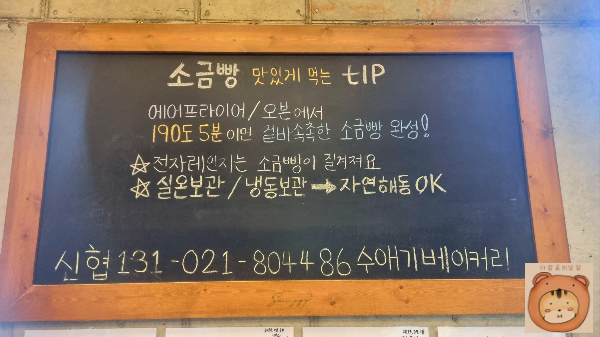 소금빵 맛있게 먹는 tIP
에어프라이어/오븐에서
190도 5분이면 겉바속촉한 소금빵 완성!
☆전자레인지는 소금빵이 질겨져요
☆실온보관/냉동보관→자연해동OK
신협131-021-804486수애기베이커리